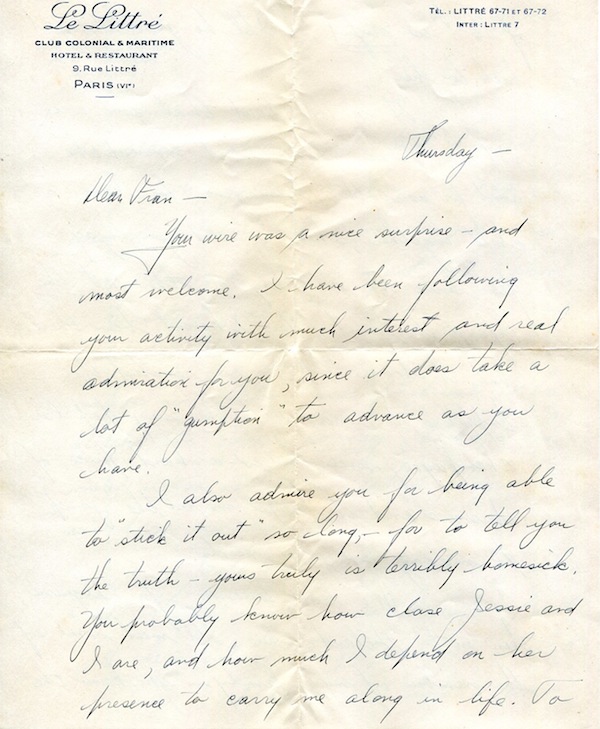 Le Littré
CLUB COLONIAL & MARITIME
HOTEL & RESTAURANT
9, Rue Littré
PARIS (VIe)
TÉL.: LITTRÉ 67-71 ET 67-72
INTER: LITTRÉ 7
Thursday —
Dear Fran —
Your wire was a nice surprise — and
most welcome. I have been following
your activity with much interest and real
admiration for you, since it does take a
lot of "gumption" to advance as you
have.
I also admire you for being able
to "stick it out" so long, — for to tell you
the truth — yours truly is terribly homesick.
You probably know how close Jessie and
I are, and how much I depend on her
presence to carry me along in life. To